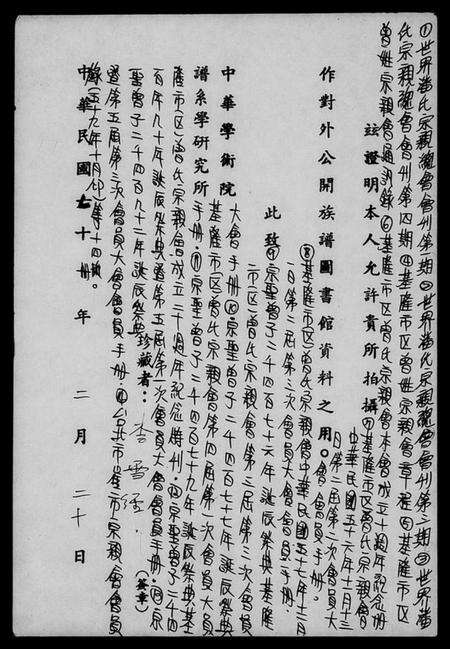 ①世界曾氏宗親總會會刊第一期②世界曾氏宗親總會會刊第二期③世界曾
氏宗親總會會刊第四期④基隆市區曾姓宗親會章程⑤基隆市區
曾姓宗親會員通訊錄⑥基隆市區曾氏宗親會本會成立十週年紀念册
茲證明本人允許貴所拍攝⑦基隆市區曾氏宗親會
中華民國五十六年十一月十三
日第二屆第二次會員大
會會員手册。
作對外公開族譜圖書館資料之用。
⑧基隆市(區)曾氏宗親會中華民國五十七年十二月
一日第二屆第三次會員大會會員手册.
此致
⑨宗聖曾子二千四百七十六年誕辰祭典基隆
市(區)曾氏宗親會第三屆第三次會員
大會手册⑩.宗聖曾子二千四百七十七年誕辰祭典
中華學術院
基隆市(區)曾氏宗親會第四屆第一次會員大會員
譜系學研究所
手册.⑪宗聖曾子二千四百七十九年誕辰祭典基
隆市(區)曾氏宗親會成立二十週年紀念特刊.⑫宗聖曾子二千四
百九十年誕辰祭典第五屆第一次會員大會會員手册.⑬宗
聖曾子二千四百九十二年誕辰祭典
珍藏者:李雪
(簽章)
第五屆第三次會員大會會員手册.⑭台北市
宗親會會員
錄(五十九年十月印)等十四册。
中華民國七十年二月二十日